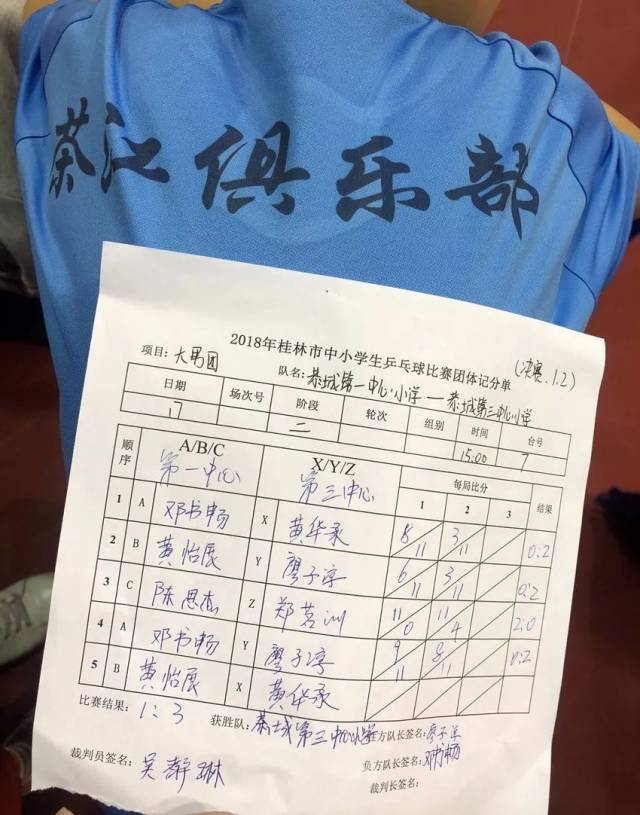 茶江俱乐部
2018年桂林市中小学生乒乓球比赛团体记分单
(决赛.1.2)
项目：大男团 队名：恭城第一中心小学 — 恭城第三中心小学
日期 场次号 阶段 轮次 组别 时间 台号
7 二 15:00 7
顺序 A/B/C 第一中心 X/Y/Z 第三中心 每局比分 1 2 3 结果
1 A 邓书畅 X 黄华承 8/11 3/11 0:2
2 B 黄怡展 Y 廖子淳 6/11 3/11 0:2
3 C 陈思杰 Z 郑茗 11/0 11/4 2:0
4 A 邓书畅 Y 廖子淳 9/11 8/11 0:2
5 B 黄怡展 X 黄华承
比赛结果：1:3 获胜队：恭城第三中心小学 胜方队长签名：廖子淳
负方队长签名：邓书畅
裁判员签名：吴静琳 裁判长签名：